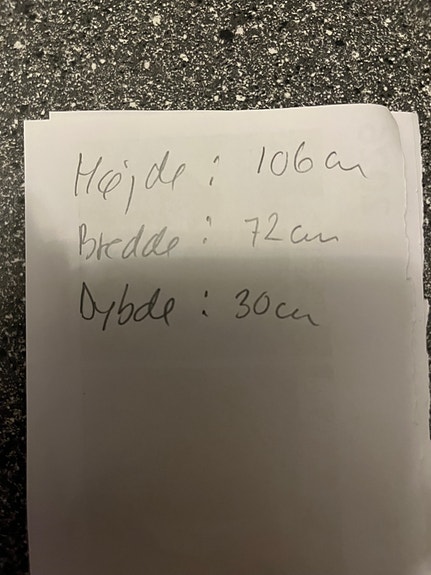 Højde : 106 cm
Bredde : 72 cm
Dybde : 30 cm